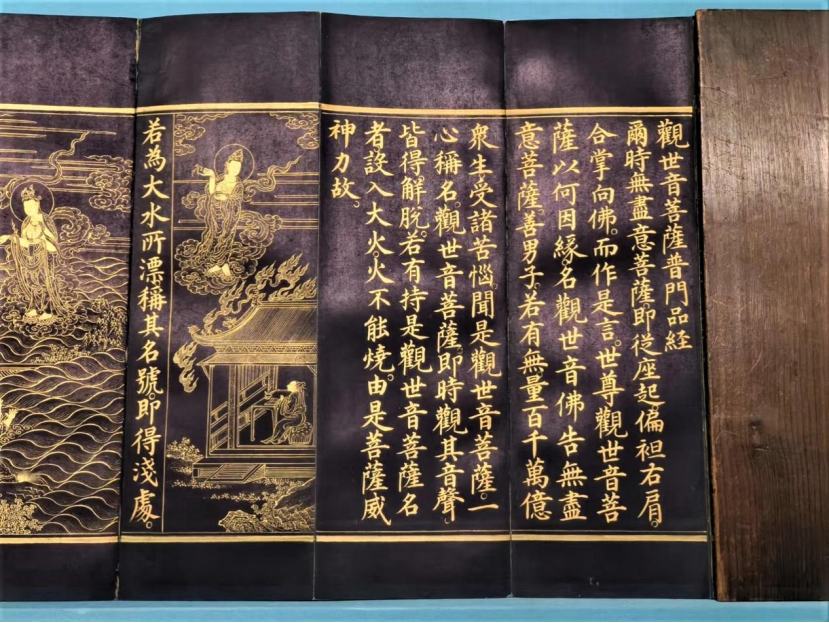 觀世音菩薩普門品経
爾時無盡意菩薩即從座起偏袒右肩。
合掌向佛。而作是言。世尊觀世音菩
薩以何因緣。名觀世音佛告無盡
意菩薩善男子。若有無量百千萬億
衆生受諸苦惱。聞是觀世音菩薩。一
心稱名。觀世音菩薩即時觀其音聲。
皆得解脫。若有持是觀世音菩薩名
者設入大火。火不能燒。由是菩薩威
神力故。
若為大水所漂。稱其名號。即得淺處。